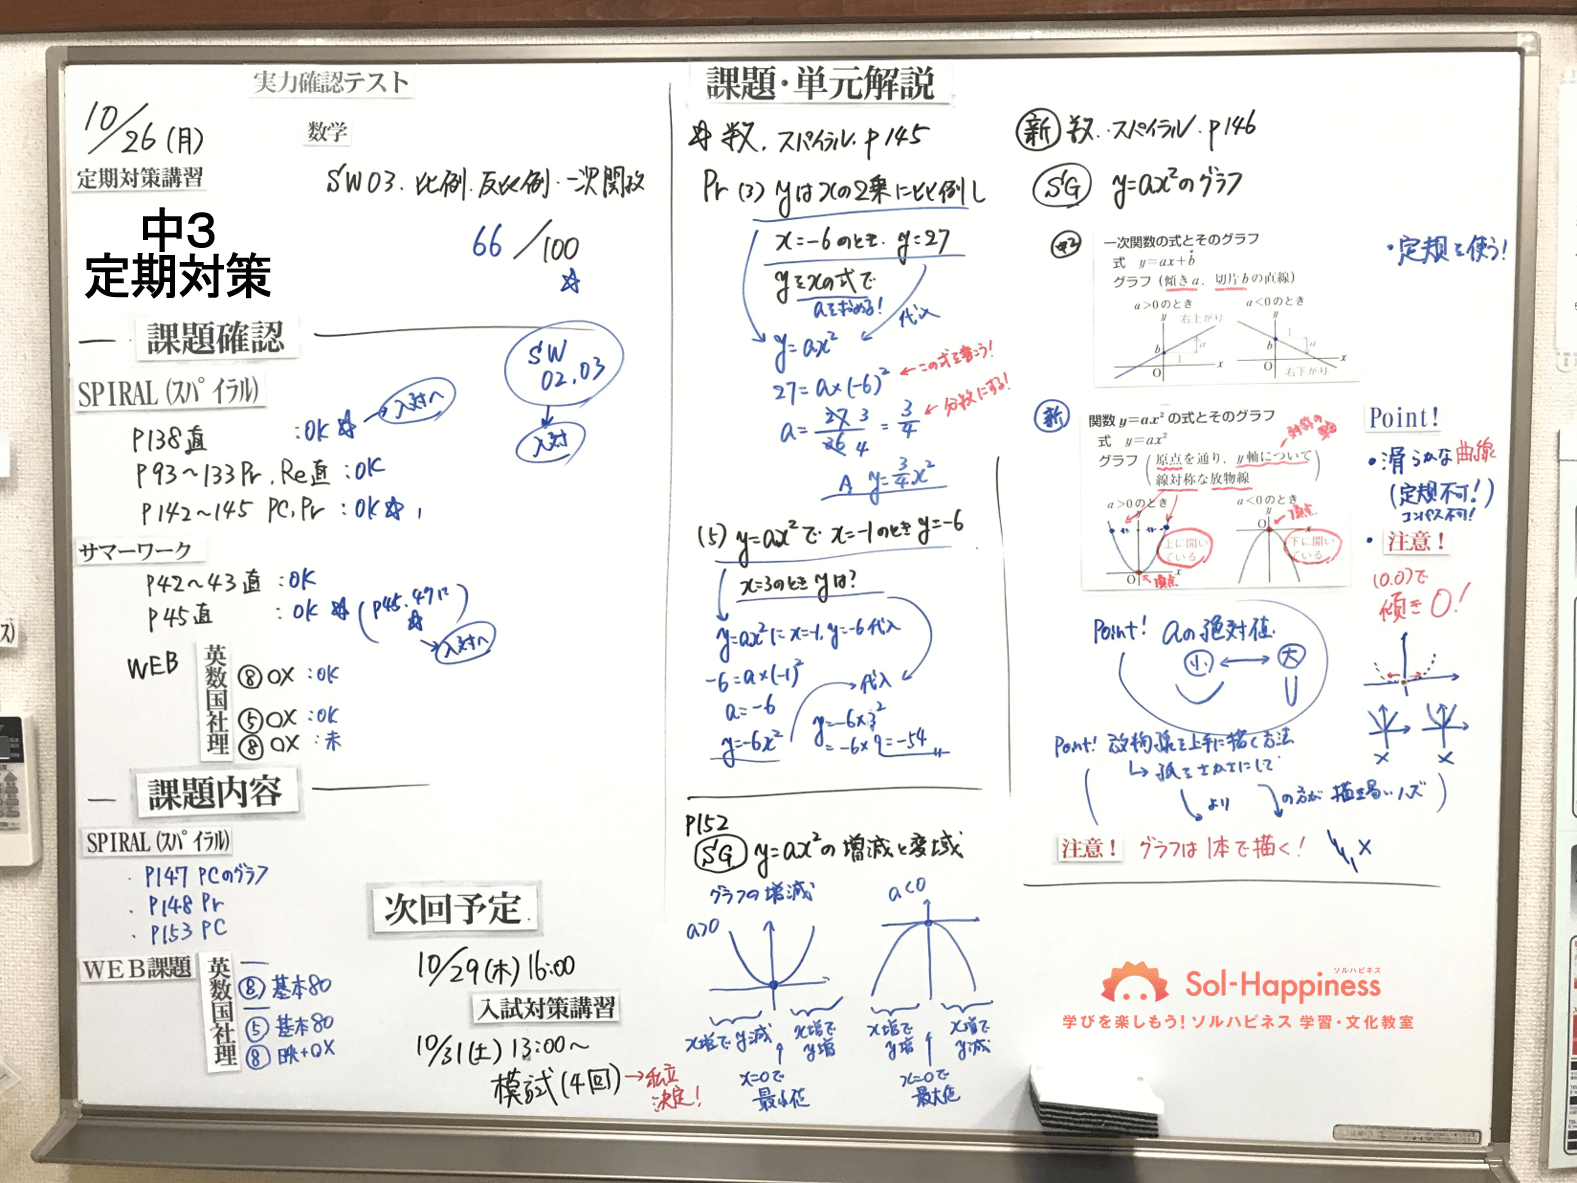 実力確認テスト
10/26(月)
数学
定期対策講習
SW03.比例.反比例.一次関数
中3
定期対策
66/100
課題確認
SW
02.03
入対
SPIRAL(スパイラル)
入対へ
P138直 :OK
P93～133Pr.Re直:OK
P142～145 PC,Pr :OK
サマーワーク
P42～43直 :OK
P45直 :OK (P45.47に)
入対へ
WEB
英数国社理
⑧OX :OK
⑤OX :OK
⑧OX :未
課題内容
SPIRAL(スパイラル)
・P147 PCのグラフ
・P148 Pr
・P153 PC
WEB課題
英数国社理
⑧基本80
⑤基本80
⑧映+OX
次回予定
10/29(木)16:00
入試対策講習
10/31(土)13:00～
模試(4回)→私立
決定!
課題・単元解説
☆数.スパイラル.P145
Pr (3) yはxの2乗に比例し
x=-6のとき. y=27
yをxの式で
aを求める!
代入
y=ax²
27=a×(-6)² ←この式を書こう!
a=27/36 3/4 = 3/4 ←分数にする!
A y=3/4x²
(5) y=ax²で x=-1のとき y=-6
x=3のとき yは?
y=ax²に x=-1, y=-6代入
-6=a×(-1)²
→代入
a=-6
y=-6x²
y=-6×3²
=-6×9=-54
P152
SG y=ax²の増減と変域
グラフの増減
a>0
a<0
x増で y減
x増で y増
x増で y増
x増で y減
x=0で
最小値
x=0で
最大値
新 数.スパイラル.P146
SG y=ax²のグラフ
・定規を使う!
中2
一次関数の式とそのグラフ
式 y=ax+b
グラフ(傾きa, 切片bの直線)
a>0のとき
a<0のとき
右上がり
右下がり
新
関数y=ax²の式とそのグラフ
式 y=ax²
対称の軸
グラフ(原点を通り, y軸について
線対称な放物線)
a>0のとき
a<0のとき
頂点
上に開いている
下に開いている
頂点
Point!
・滑らかな曲線
(定規不可!)
コンパス不可!
・注意!
(0.0)で
傾き0!
Point! aの絶対値
小 ←→ 大
Point! 放物線を上手に描く方法
↳紙をさかさにして
より
の方が描き易いハズ
注意! グラフは1本で描く!
Sol-Happiness
ソルハピネス
学びを楽しもう!ソルハピネス 学習・文化教室